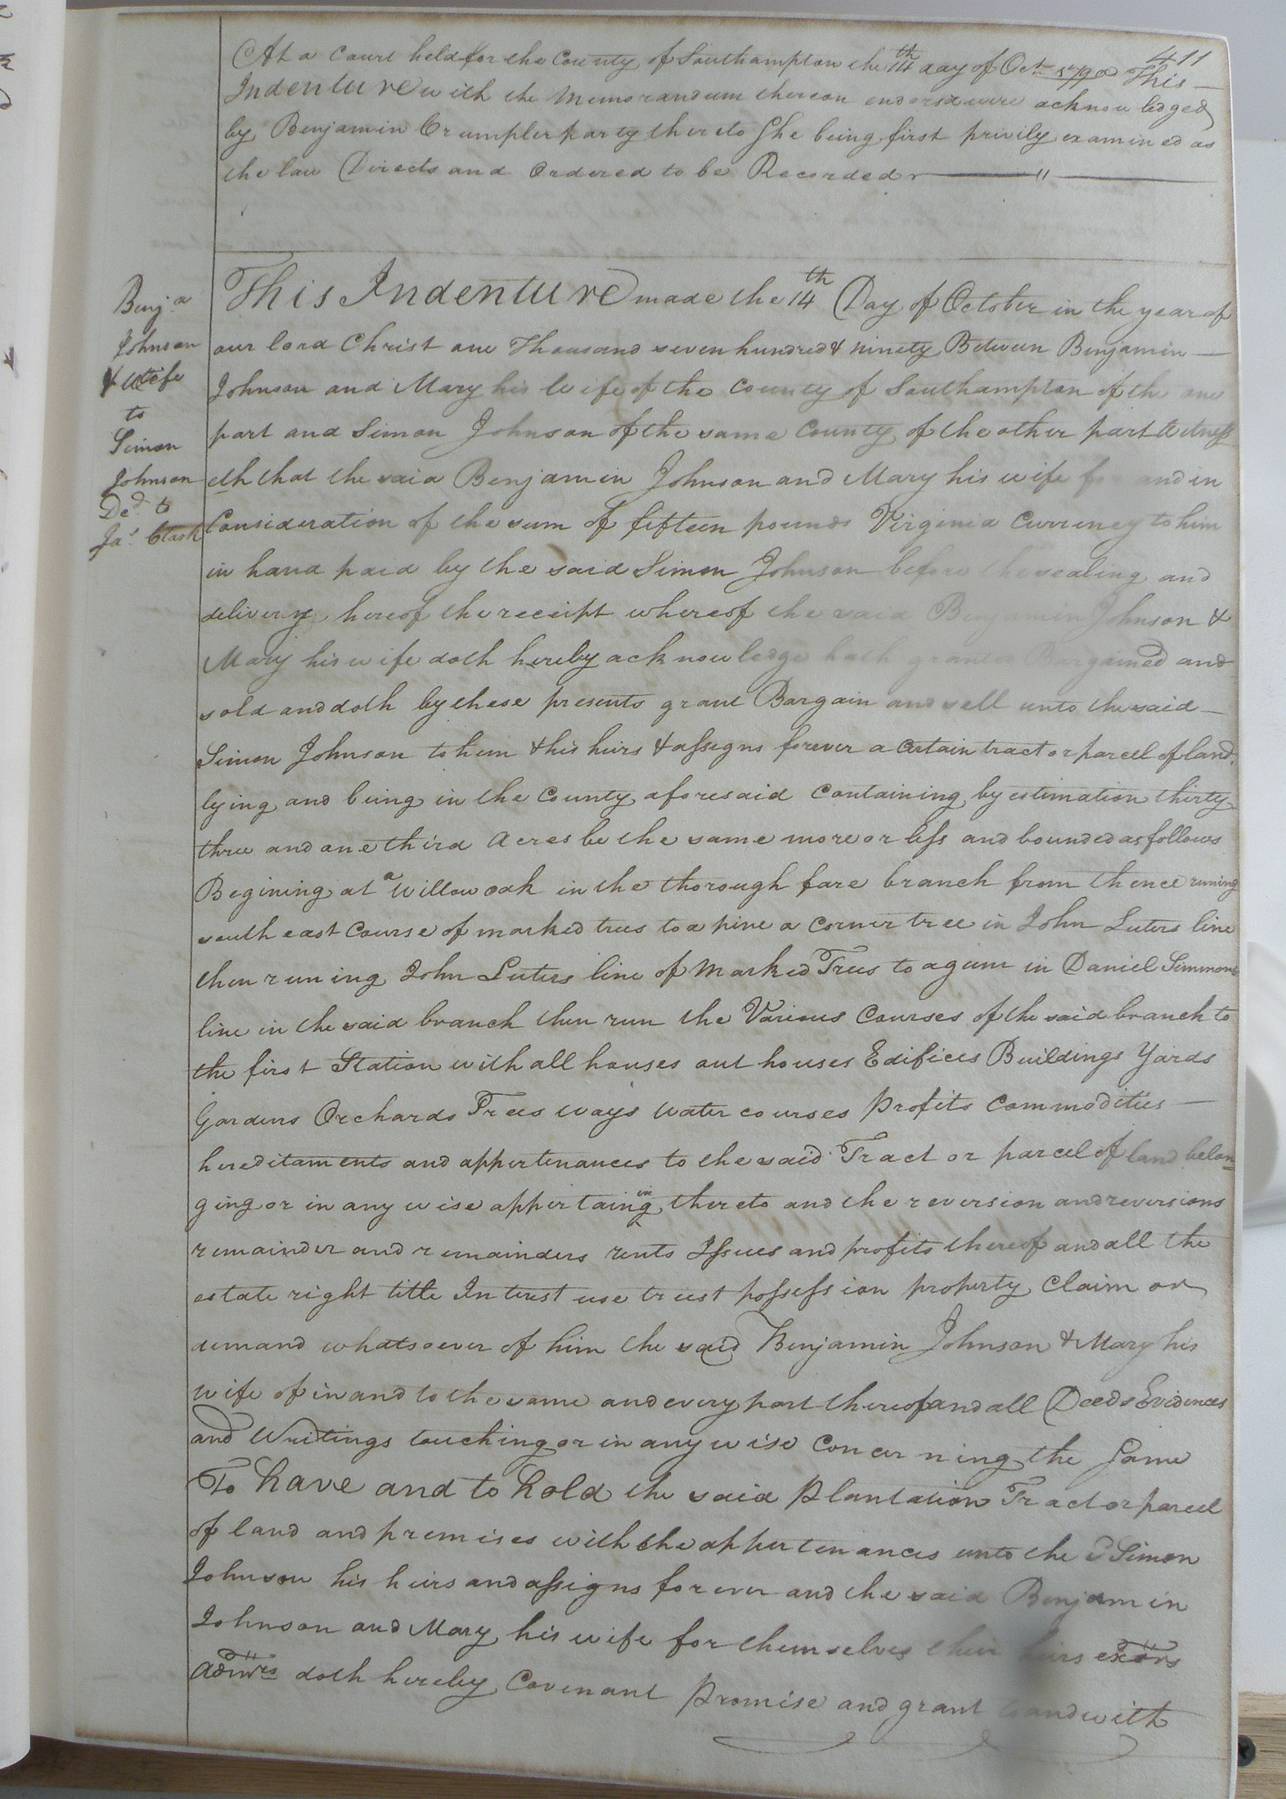 411
At a Court held for the County of Southampton the 14th day of Octr 1790 This
Indenture with the Memorandum thereon endorsd were acknowledged
by Benjamin Crumpler party thereto She being first privily examined as
the law Directs and Ordered to be Recorded
Benja
Johnson
& Wife
to
Simon
Johnson
Ded to
Jas Clark
This Indenture made the 14th Day of October in the year of
our lord Christ one Thousand seven hundred & ninety Between Benjamin
Johnson and Mary his Wife of the County of Southampton of the one
part and Simon Johnson of the same County of the other part Witness
eth that the said Benjamin Johnson and Mary his wife for and in
Consideration of the sum of fifteen pounds Virginia Currency to him
in hand paid by the said Simon Johnson before the sealing and
delivery hereof the receipt whereof the said Benjamin Johnson &
Mary his wife doth hereby acknowledge hath granted Bargained and
sold and doth by these presents grant Bargain and sell unto the said
Simon Johnson to him & his heirs & assigns forever a certain tract or parcel of land
lying and being in the County aforesaid Containing by estimation thirty
three and one third Acres be the same more or less and bounded as follows
Begining at a Willow oak in the thorough fare branch from thence runing
south east Course of marked trees to a pine a Corner tree in John Luters line
then runing John Luters line of Marked Trees to a gum in Daniel Simmons
line in the said branch then run the Various Courses of the said branch to
the first Station with all houses out houses Edifices Buildings Yards
Gardens Orchards Trees ways water courses Profits Commodities
hereditaments and appertenances to the said Tract or parcel of land belon
ging or in any wise appertaining thereto and the reversion and reversions
remainder and remainders rents Issues and profits thereof and all the
estate right title Interest use trust possession property Claim or
demand whatsoever of him the said Benjamin Johnson & Mary his
Wife of in and to the same and every part thereof and all Deeds Evidences
and Writings touching or in any wise Concerning the Same
To have and to hold the said Plantation Tract or parcel
of land and premises with the appertenances unto the sd Simon
Johnson his heirs and assigns forever and the said Benjamin
Johnson and Mary his wife for themselves their heirs exors
Admrs doth hereby Covenant Promise and grant to and with